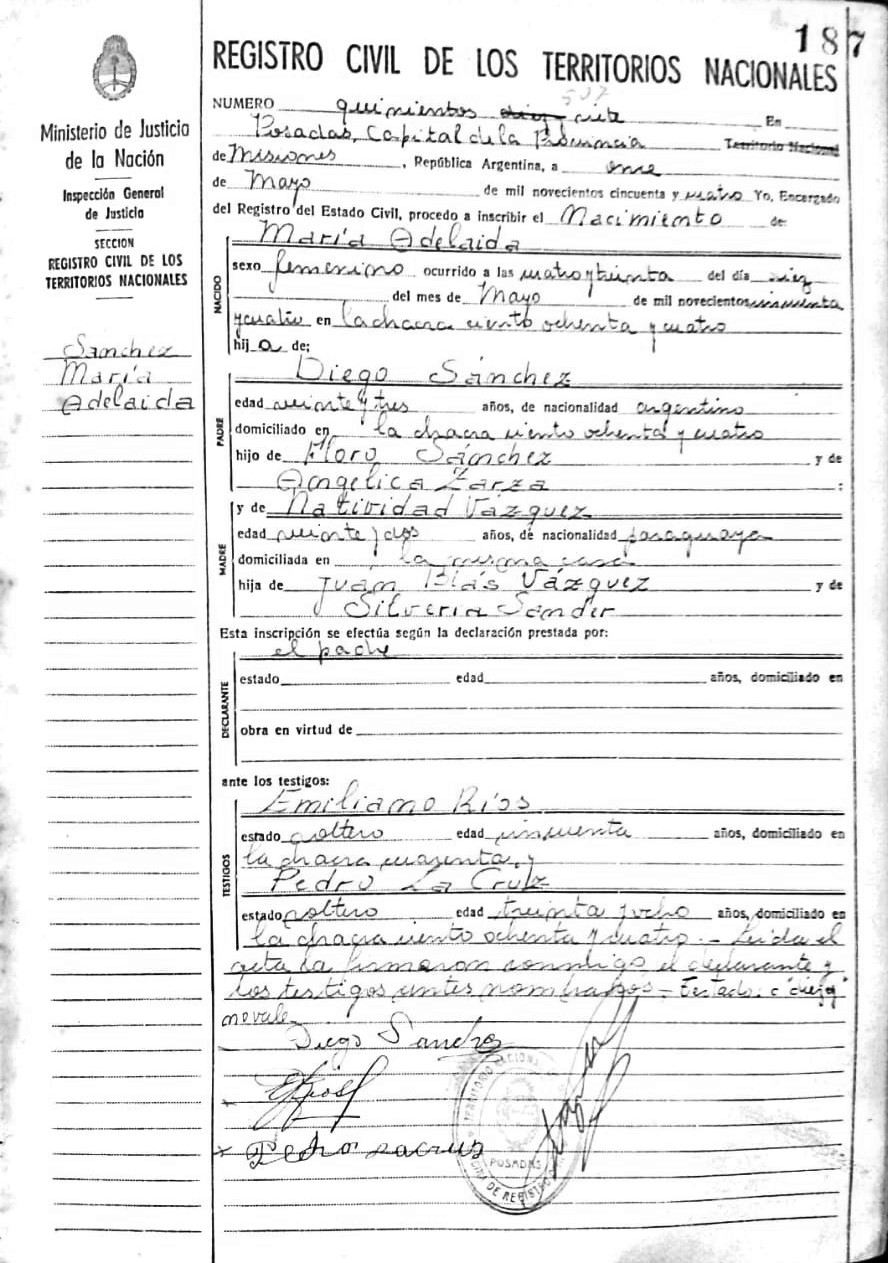 187
REGISTRO CIVIL DE LOS TERRITORIOS NACIONALES
Ministerio de Justicia
de la Nación
Inspección General
de Justicia
SECCION
REGISTRO CIVIL DE LOS
TERRITORIOS NACIONALES
Sanchez
María
Adelaida
507
NUMERO quinientos diez siete En
Posadas, Capital de la Provincia Territorio Nacional
de Misiones, República Argentina, a once
de Mayo de mil novecientos cincuenta y cuatro Yo, Encargado
del Registro del Estado Civil, procedo a inscribir el Nacimiento de:
NACIDO
María Adelaida
sexo femenino ocurrido a las cuatro y treinta del día diez
del mes de Mayo de mil novecientos cincuenta
y cuatro en la chacra ciento ochenta y cuatro
hij a de:
PADRE
Diego Sánchez
edad veinte y tres años, de nacionalidad argentino
domiciliado en la chacra ciento ochenta y cuatro
hijo de Floro Sánchez y de
Angelica Zarza :
MADRE
y de Natividad Vázquez
edad veinte y dos años, de nacionalidad paraguaya
domiciliada en la misma casa
hija de Juan Blás Vázquez y de
Silveria Sander
Esta inscripción se efectúa según la declaración prestada por:
DECLARANTE
el padre
estado edad años, domiciliado en
obra en virtud de
ante los testigos:
TESTIGOS
Emiliano Ríos
estado soltero edad cincuenta años, domiciliado en
la chacra cuarenta y
Pedro La Cruz
estado soltero edad treinta y ocho años, domiciliado en
la chacra ciento ochenta y cuatro.- Leída el
acta la firmaron conmigo el declarante y
los testigos antes nombrados - Testado: "diez"
no vale
Diego Sanchez
Pedro Lacruz
TERRITORIO NACIONAL
POSADAS
OFICINA DE REGISTRO